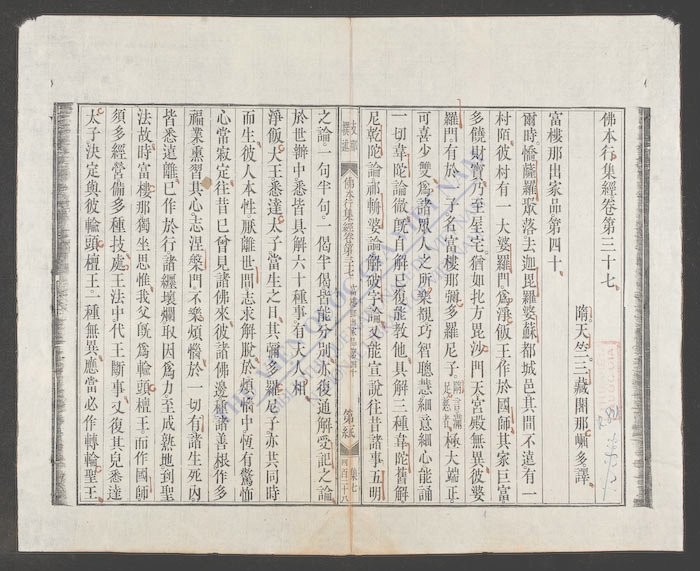 佛本行集經卷第三十七
隋天竺三藏闍那崛多譯
富樓那出家品第四十
爾時憍薩羅聚落去迦毘羅婆蘇都城邑其間不遠有一
村陌彼村有一大婆羅門爲淨飯王作於國師其家巨富
多饒財寶乃至屋宅猶如北方毘沙門天宮殿無異彼婆
羅門有於一子名富樓那彌多羅尼子 極大端正
可喜少雙爲諸眾人之所樂覩巧智聰慧細意細心能誦
一切韋陀論徹既自解已復能教他具解三種韋陀皆解
尼乾陀論祁輈婆論解破字論又能宣說往昔諸事五明
佛本行集經卷第三十七
第紙
集七
之論一句半句一偈半偈皆能分別亦復通解受記之論
於世辯中悉皆具解六十種事有大人相
淨飯大王悉達太子當生之日其彌多羅尼子亦共同時
而生彼人本性厭離世間志求解脫於煩惱中恆有驚怖
心常寂定往昔已曾見諸佛來彼諸佛邊種諸善根作多
福業熏習其心志涅槃門不樂煩惱於一切有諸生死內
皆悉遠離已作於行諸纏壞爛取因爲力至成熟地到聖
法故時富樓那獨坐思惟我父既爲輪頭檀王而作國師
須多經營備多種技處王法中代王斷事又復其兒悉達
太子決定與彼輪頭檀王一種無異應當必作轉輪聖王